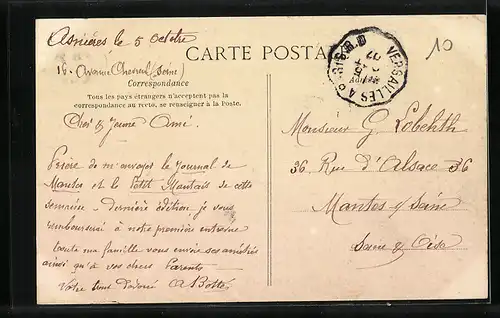 Asnières le 5 Octobre
16. Avenue Chevreul (Seine)
CARTE POSTALE
Correspondance
Tous les pays étrangers n'acceptent pas la
correspondance au recto, se renseigner à la Poste.
VERSAILLES A PARIS
07
10
Cher & Jeune Ami.
Prière de m'envoyer le Journal de
Mantes et le Petit Mantais de cette
semaine - dernière édition, je vous
rembourserai à notre première entrevue
toute ma famille vous envoie ses amitiés
ainsi qu'à vos chers Parents -
Votre tout Dévoué
Monsieur G.
36 Rue d'Alsace 36
Mantes s/ Seine
Seine & Oise